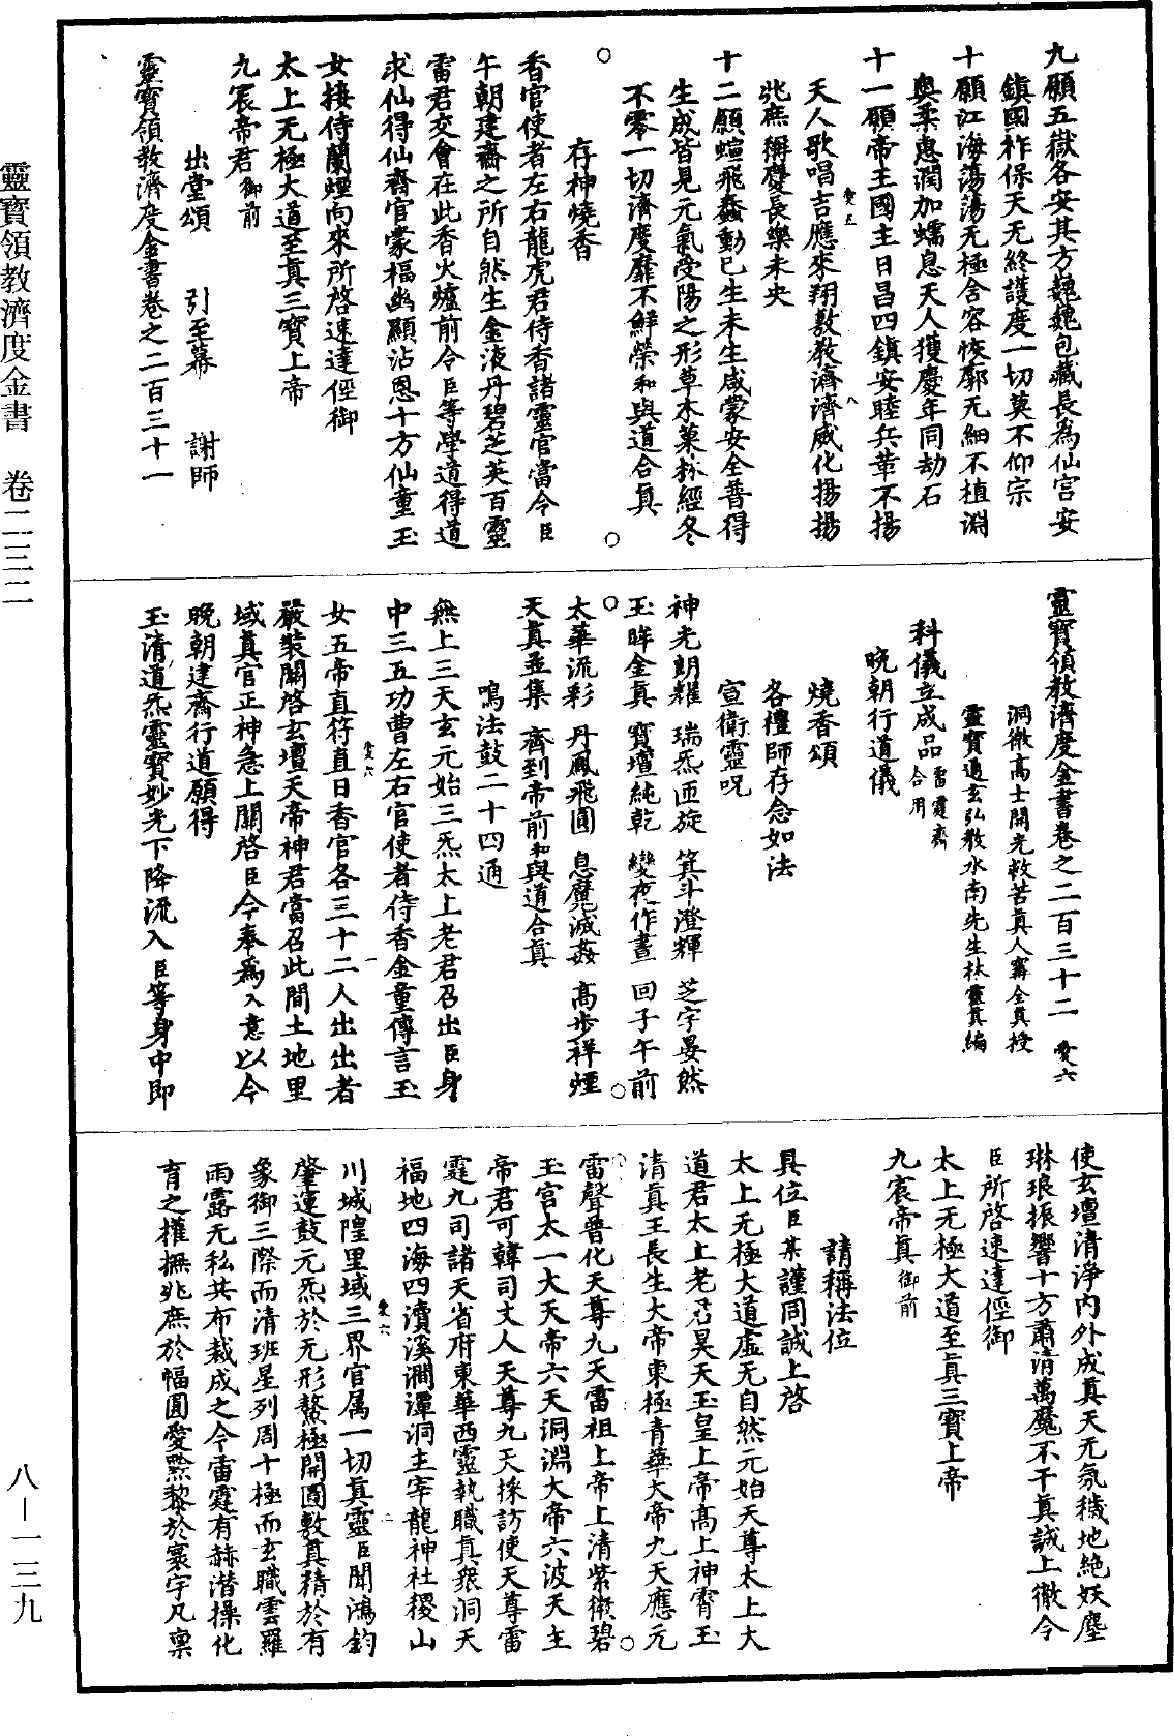 九願五嶽各安其方巍巍包藏長為仙宮安
鎮國祚保天无終護度一切莫不仰宗
十願江海蕩蕩无極含容恢廓无細不植淵
奧柔惠潤加蠕息天人獲慶年同劫石
十一願帝王國主日昌四鎮安睦兵革不揚
天人歌唱吉應來翔敷教濟濟威化揚揚
兆庶獬㢡長樂未央
十二願蝖飛蠢動已生未生咸蒙安全普得
生成皆見元氣受陽之形草木菓林經冬
不零一切濟度靡不鮮榮和與道合真
存神燒香
香官使者左右龍虎君侍香諸靈官當令臣
午朝建齋之所自然生金液丹碧芝英百靈
雷君交會在此香火爐前令臣等學道得道
求仙得仙齋官蒙福幽顯沾恩十方仙童玉
女接侍蘭煙向來所啓速達徑御
太上无極大道至真三寶上帝
九宸帝君御前
出堂頌 引至幕 謝師
靈寶領教濟度金書卷之二百三十一
靈寶領教濟度金書卷之二百三十二 愛六
洞微高士開光救苦真人甯全真授
靈寶通玄弘教水南先生林靈真編
科儀立成品雷霆齋合用
晚朝行道儀
燒香頌
各禮師存念如法
宣衛靈呪
神光朗耀 瑞炁匝旋 箕斗澄輝 芝字晏然
玉眸金真 寶壇純乾 變夜作晝 回子午前
太華流彩 丹鳳飛圓 息魔滅姦 高步祥煙
天真並集 齊到帝前和與道合真
鳴法鼓二十四通
無上三天玄元始三炁太上老君召出臣身
中三五功曹左右官使者侍香金童傳言玉
女五帝直符直日香官各三十二人出出者
嚴裝關啓玄壇天帝神君當召此間土地里
域真官正神急上關啓臣今奉爲入意以今
晚朝建齋行道願得
玉清道炁靈寶妙光下降流入臣等身中即
使玄壇清淨內外成真天无氛穢地絕妖塵
琳琅振響十方肅清萬魔不干真誠上徹令
臣所啓速達徑御
太上无極大道至真三寶上帝
九宸帝真御前
請稱法位
具位臣某謹同誠上啓
太上无極大道虛无自然元始天尊太上大
道君太上老君昊天玉皇上帝高上神霄玉
清真王長生大帝東極青華大帝九天應元
雷聲普化天尊九天雷祖上帝上清紫微碧
玉宮太一大天帝六天洞淵大帝六波天主
帝君可韓司丈人天尊九天採訪使天尊雷
霆九司諸天省府東華西靈執職真衆洞天
福地四海四瀆溪澗潭洞主宰龍神社稷山
川城隍里域三界官属一切真靈臣聞鴻鈞
肇運鼓元炁於无形鰲極開圖敷真精於有
象御三際而清班星列周十極而玄職雲羅
雨露无私共布裁成之令雷霆有赫潛操化
育之權撫兆庶於幅圓愛黔黎於寰宇凡稟
靈寶領教濟度金書 卷二三二
八—一三九